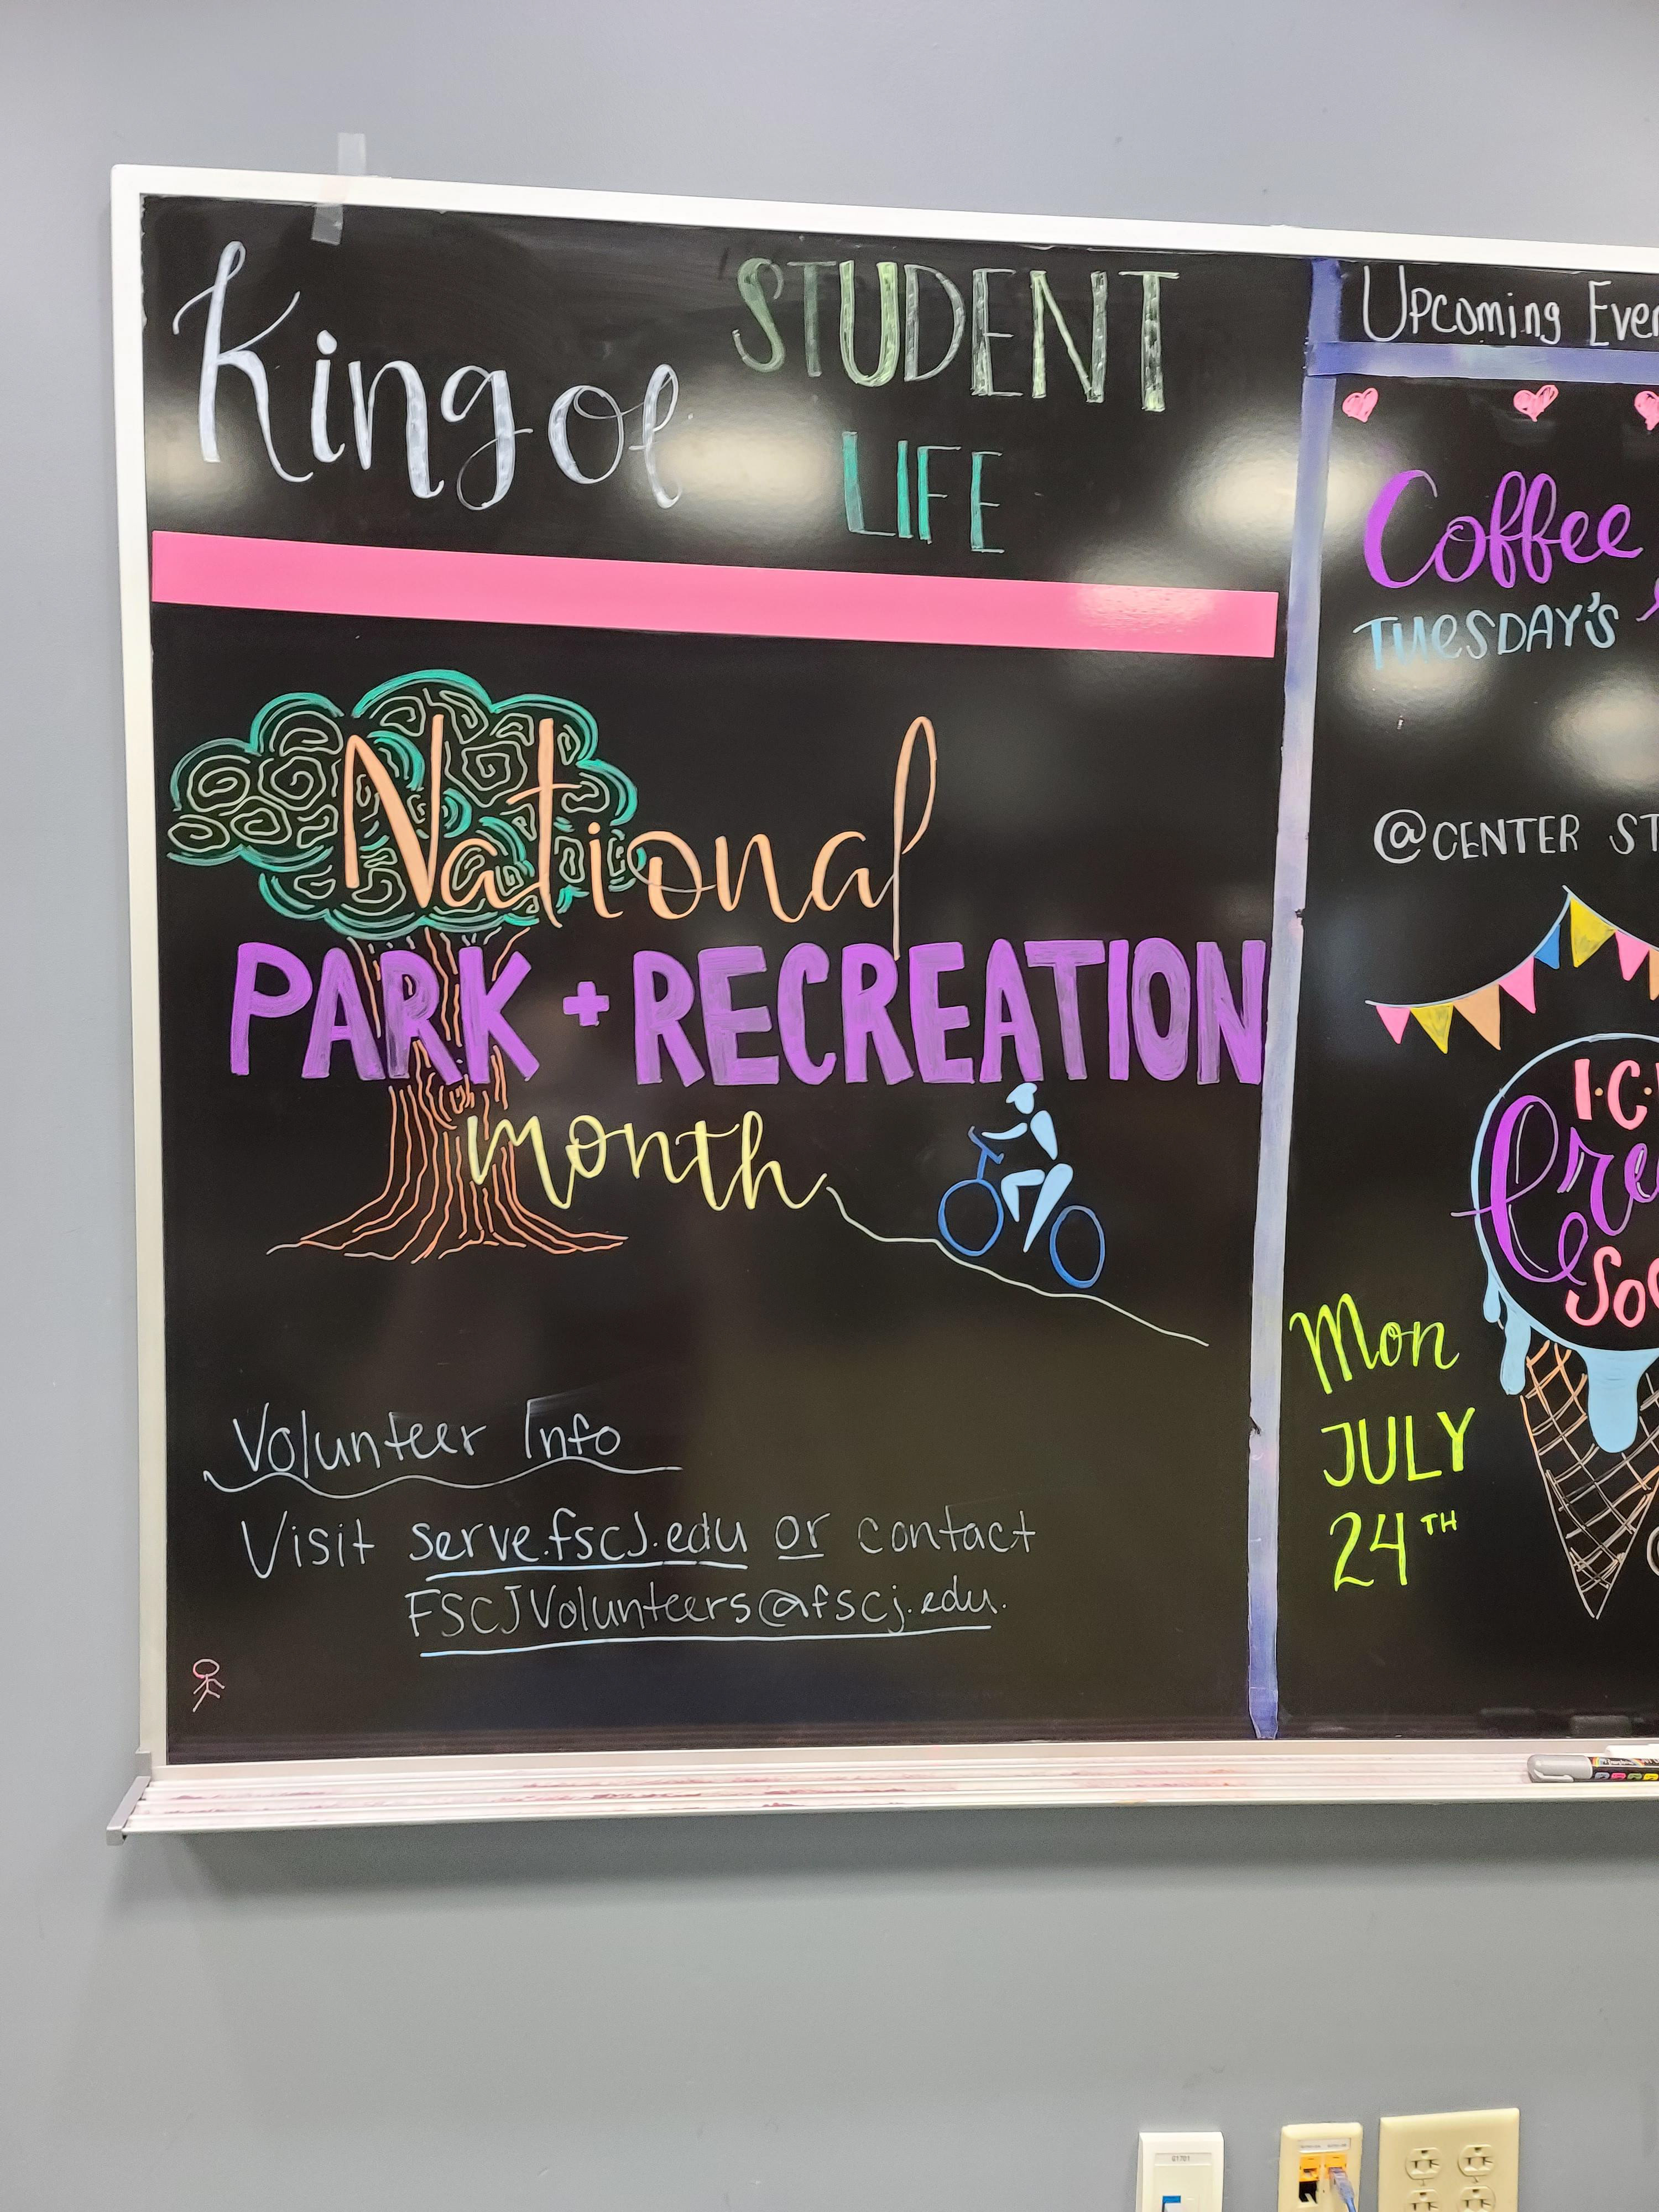 King of STUDENT
LIFE
National
PARK + RECREATION
month
Volunteer Info
Visit serve.fscj.edu or contact
FSCJVolunteers@fscj.edu.
Upcoming
Coffee
TUESDAY'S
@CENTER
Mon
JULY
24TH